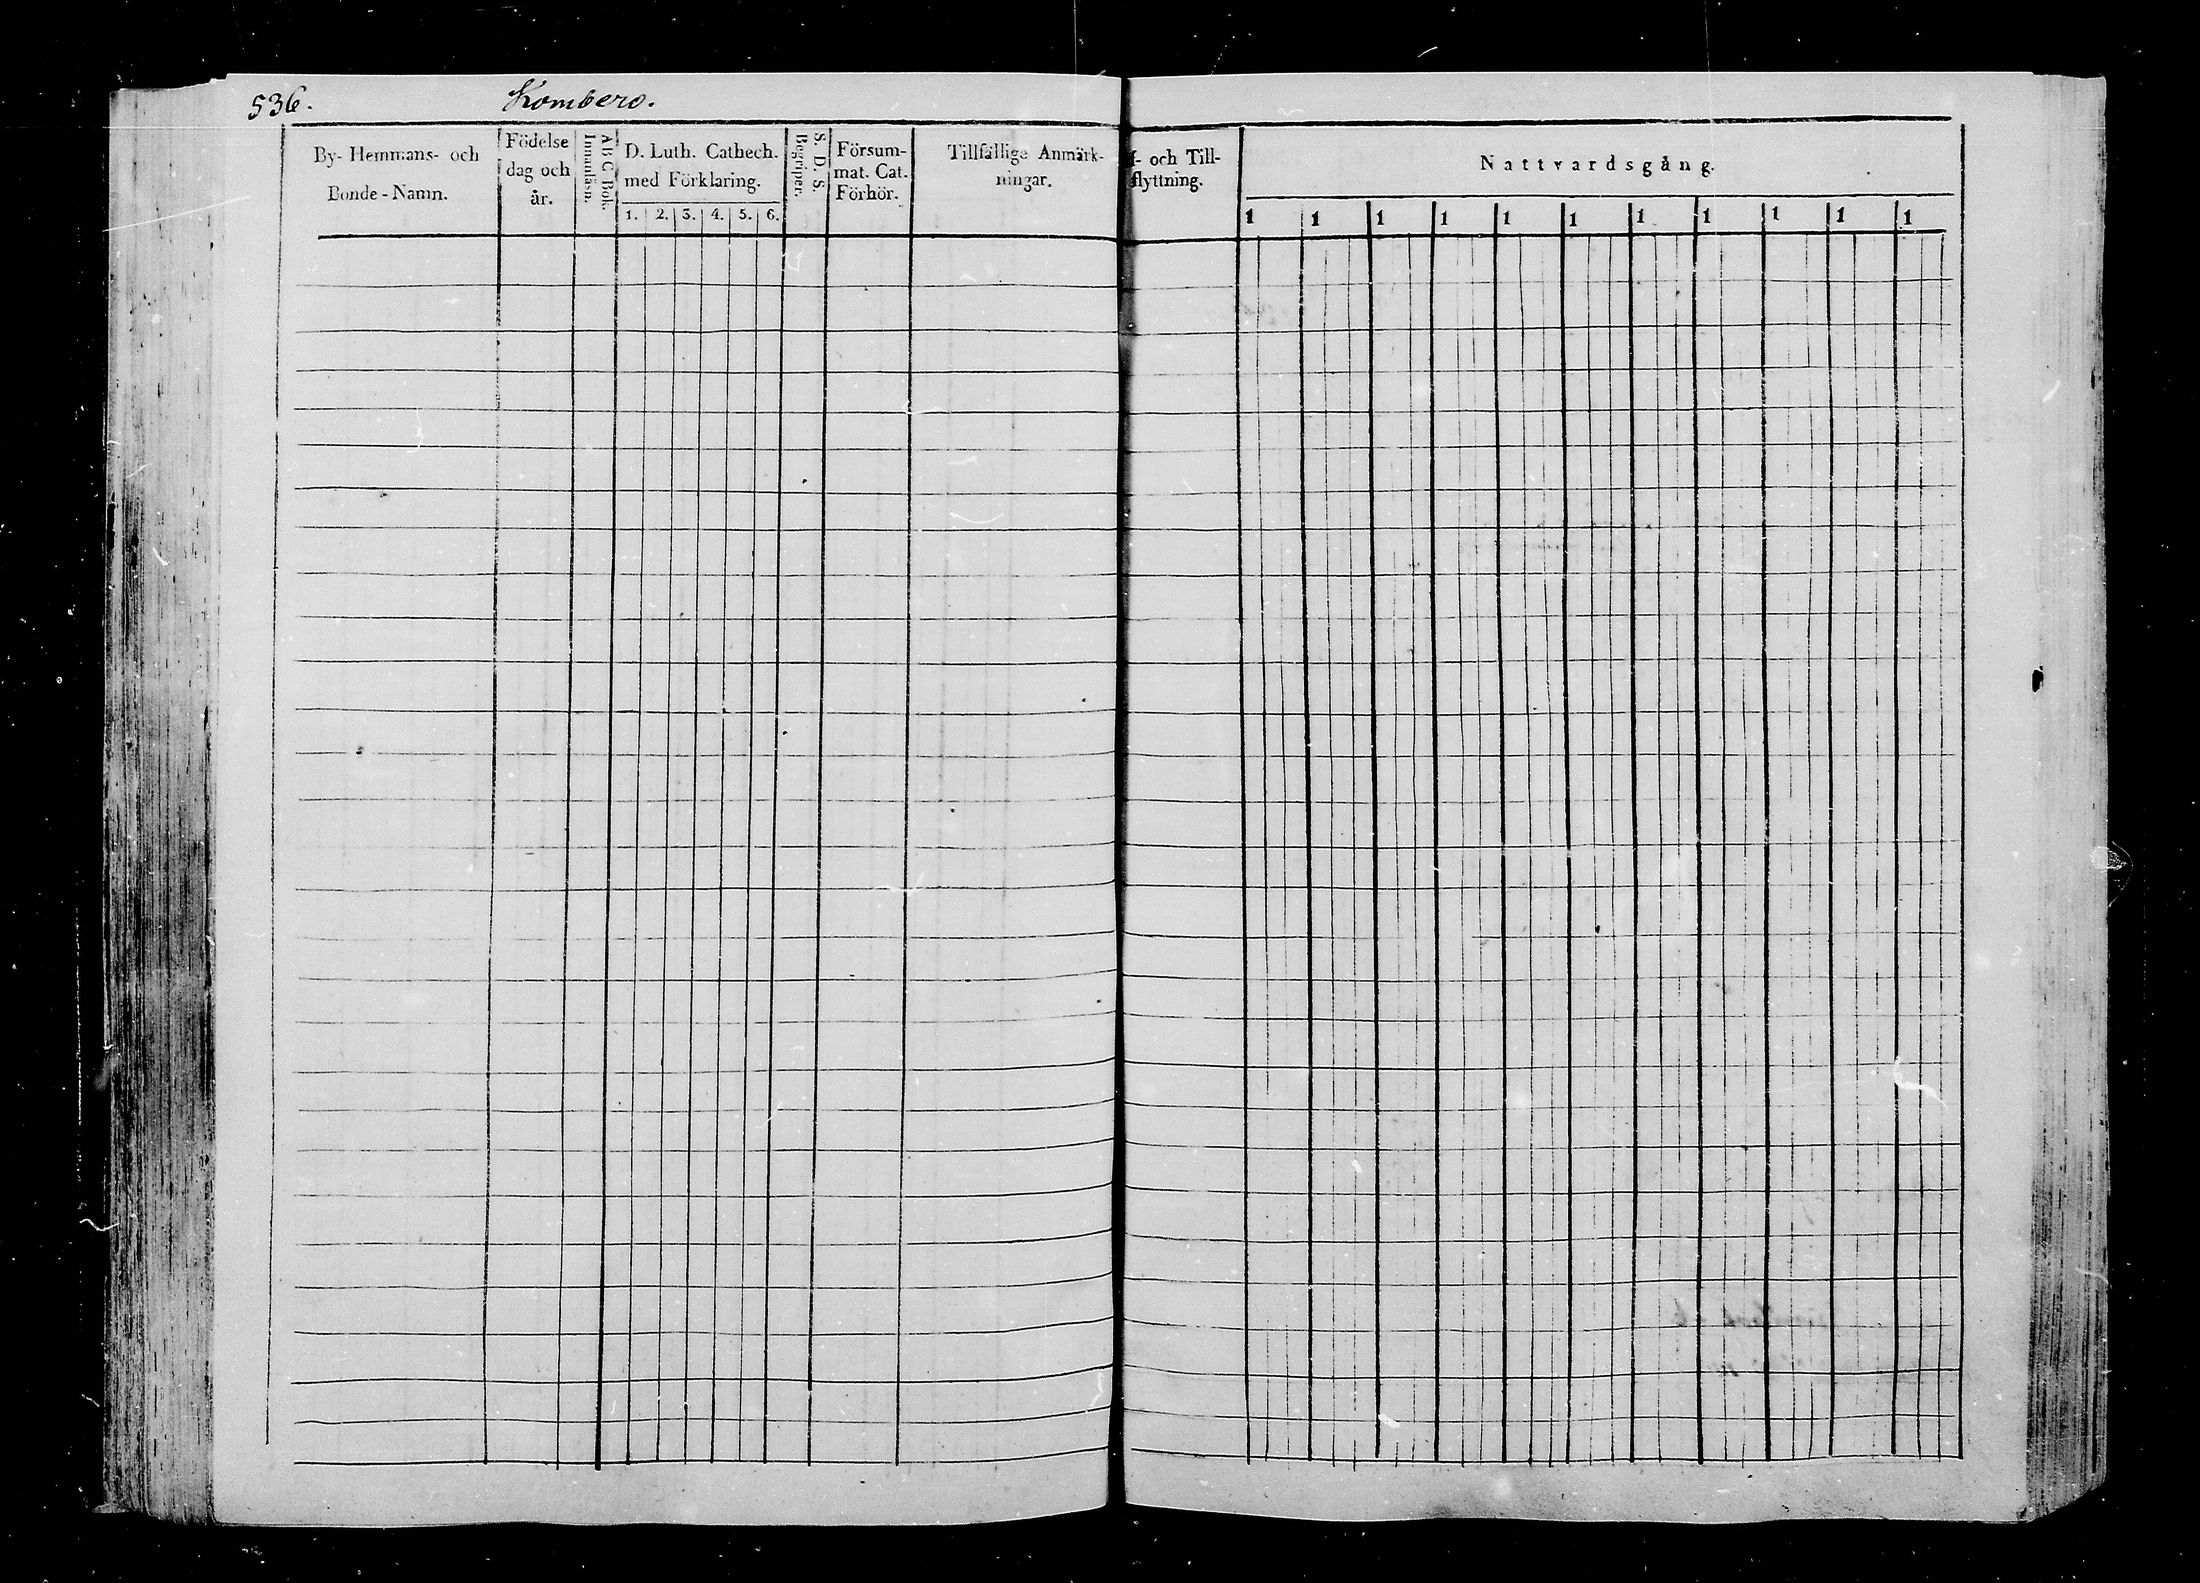 536. Kombero.
By- Hemmans- och
Bonde - Namn.
Födelse
dag och
år.
A B C Bok.
Innanläsn.
D. Luth. Cathech.
med Förklaring.
1. 2. 3. 4. 5. 6.
S. D. S.
Begriper.
Försum-
mat. Cat.
Förhör.
Tillfällige Anmärk-
ningar.
- och Till-
flyttning.
Nattvardsgång.
1 1 1 1 1 1 1 1 1 1 1